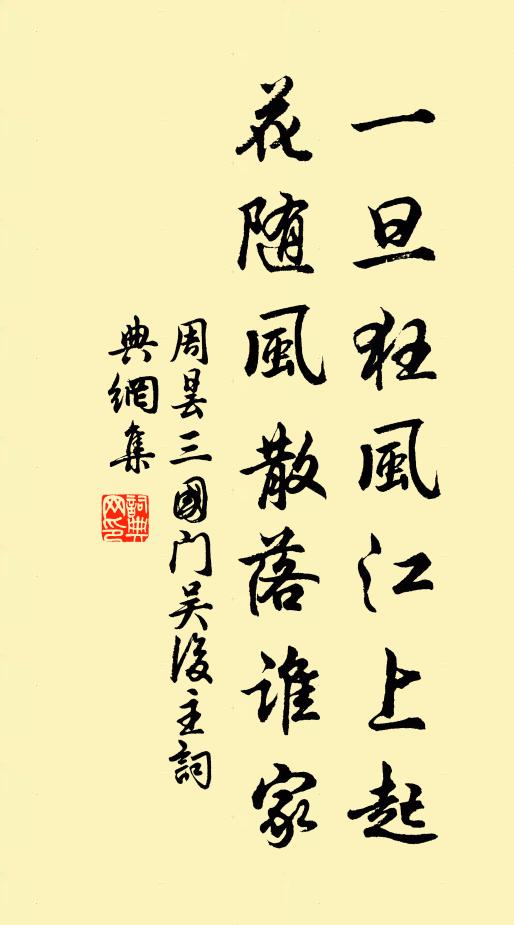 一旦狂風江上起
花随風散落誰家
周曇三國门吴後主詞
典網集
詞典网印